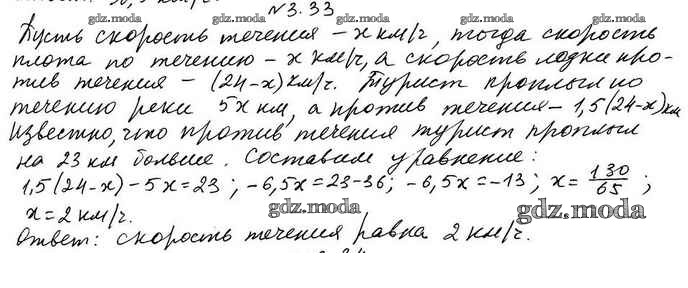 №3.33
gdz.moda gdz.moda gdz.moda
Пусть скорость течения – x км/ч, тогда скорость
плота по течению – x км/ч, а скорость лодки про-
тив течения – (24-x) км/ч. Турист проплыл по
gdz.moda gdz.moda gdz.moda
течению реки 5x км, а против течения – 1,5(24-x) км
Известно, что против течения турист проплыл
на 23 км больше. Составим уравнение:
gdz.moda gdz.moda gdz.moda
1,5(24-x)-5x=23; -6,5x=23-36; -6,5x=-13; x=130/65;
x=2 км/ч.
gdz.moda gdz.moda
Ответ: скорость течения равна 2 км/ч.